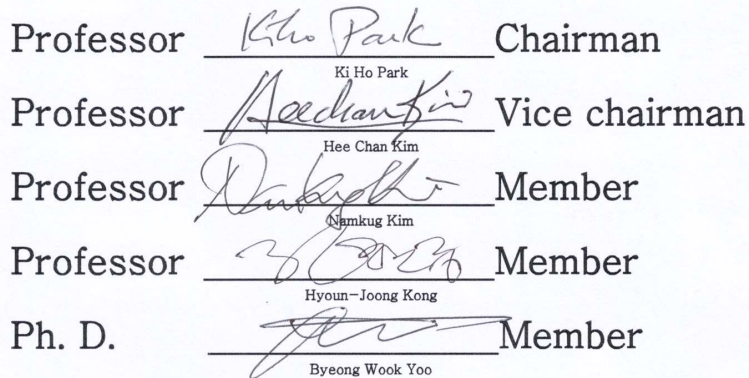 Professor Kiho Park Chairman
Ki Ho Park
Professor Heechan Kim Vice chairman
Hee Chan Kim
Professor Namkug Kim Member
Namkug Kim
Professor Member
Hyoun-Joong Kong
Ph. D. Member
Byeong Wook Yoo